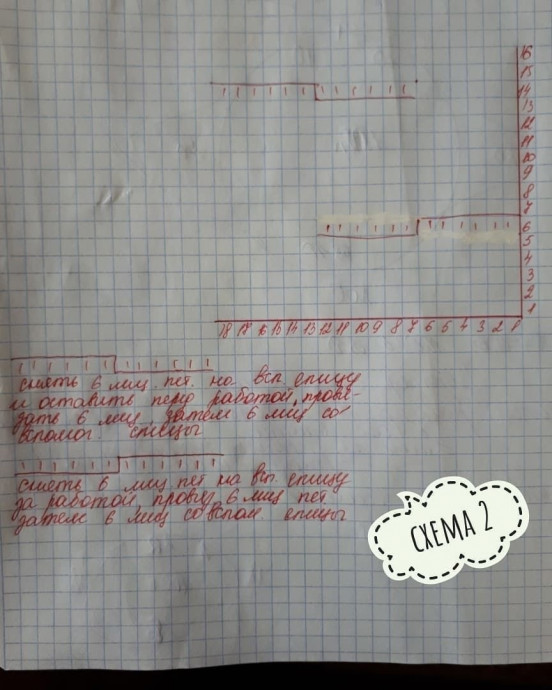 16
15
14
13
12
11
10
9
8
7
6
5
4
3
2
1
18 17 16 15 14 13 12 11 10 9 8 7 6 5 4 3 2 1
снять 6 лиц. пет. на всп. спицу
и оставить перед работой, провя-
зать 6 лиц, затем 6 лиц со
вспомог. спицы
снять 6 лиц пет на вп. спицу
за работой, провяз 6 лиц пет
затем 6 лиц со вспом спицы
СХЕМА 2